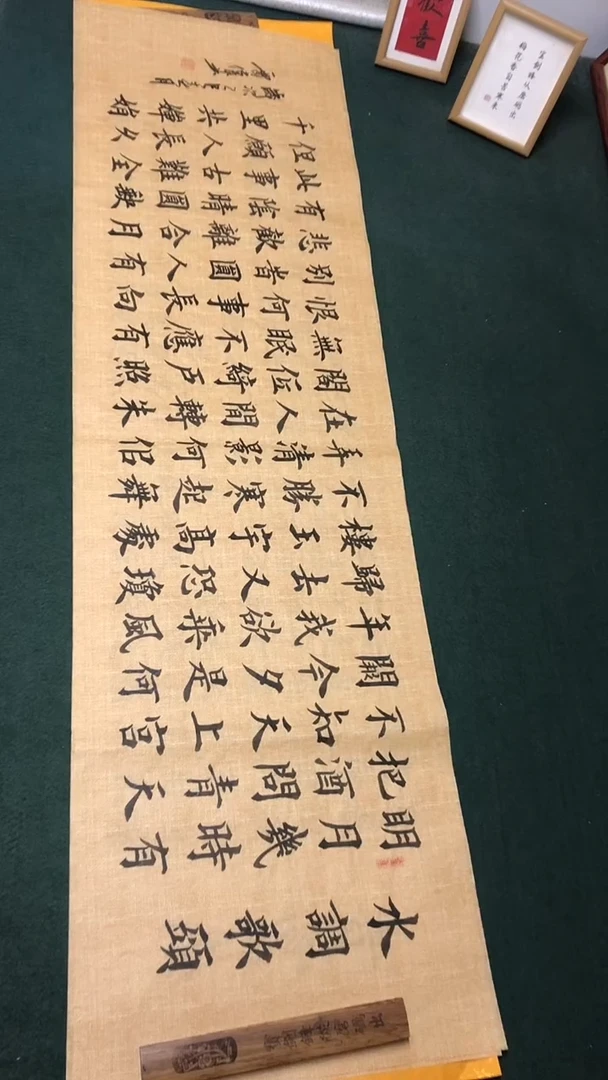 水調歌頭
明月幾時有
把酒問青天
不知天上宮
闕今夕是何
年我欲乘風
歸去又恐瓊
樓玉宇高處
不勝寒起舞
弄清影何佀
在人間轉朱
閣低綺户照
無眠不應有
恨何事長向
别旹圓人有
悲歡離合月
有陰晴圓缺
此事古難全
但願人長久
千里共嬋娟
歡喜
宝劍鋒从磨砺出
梅花香自苦寒来